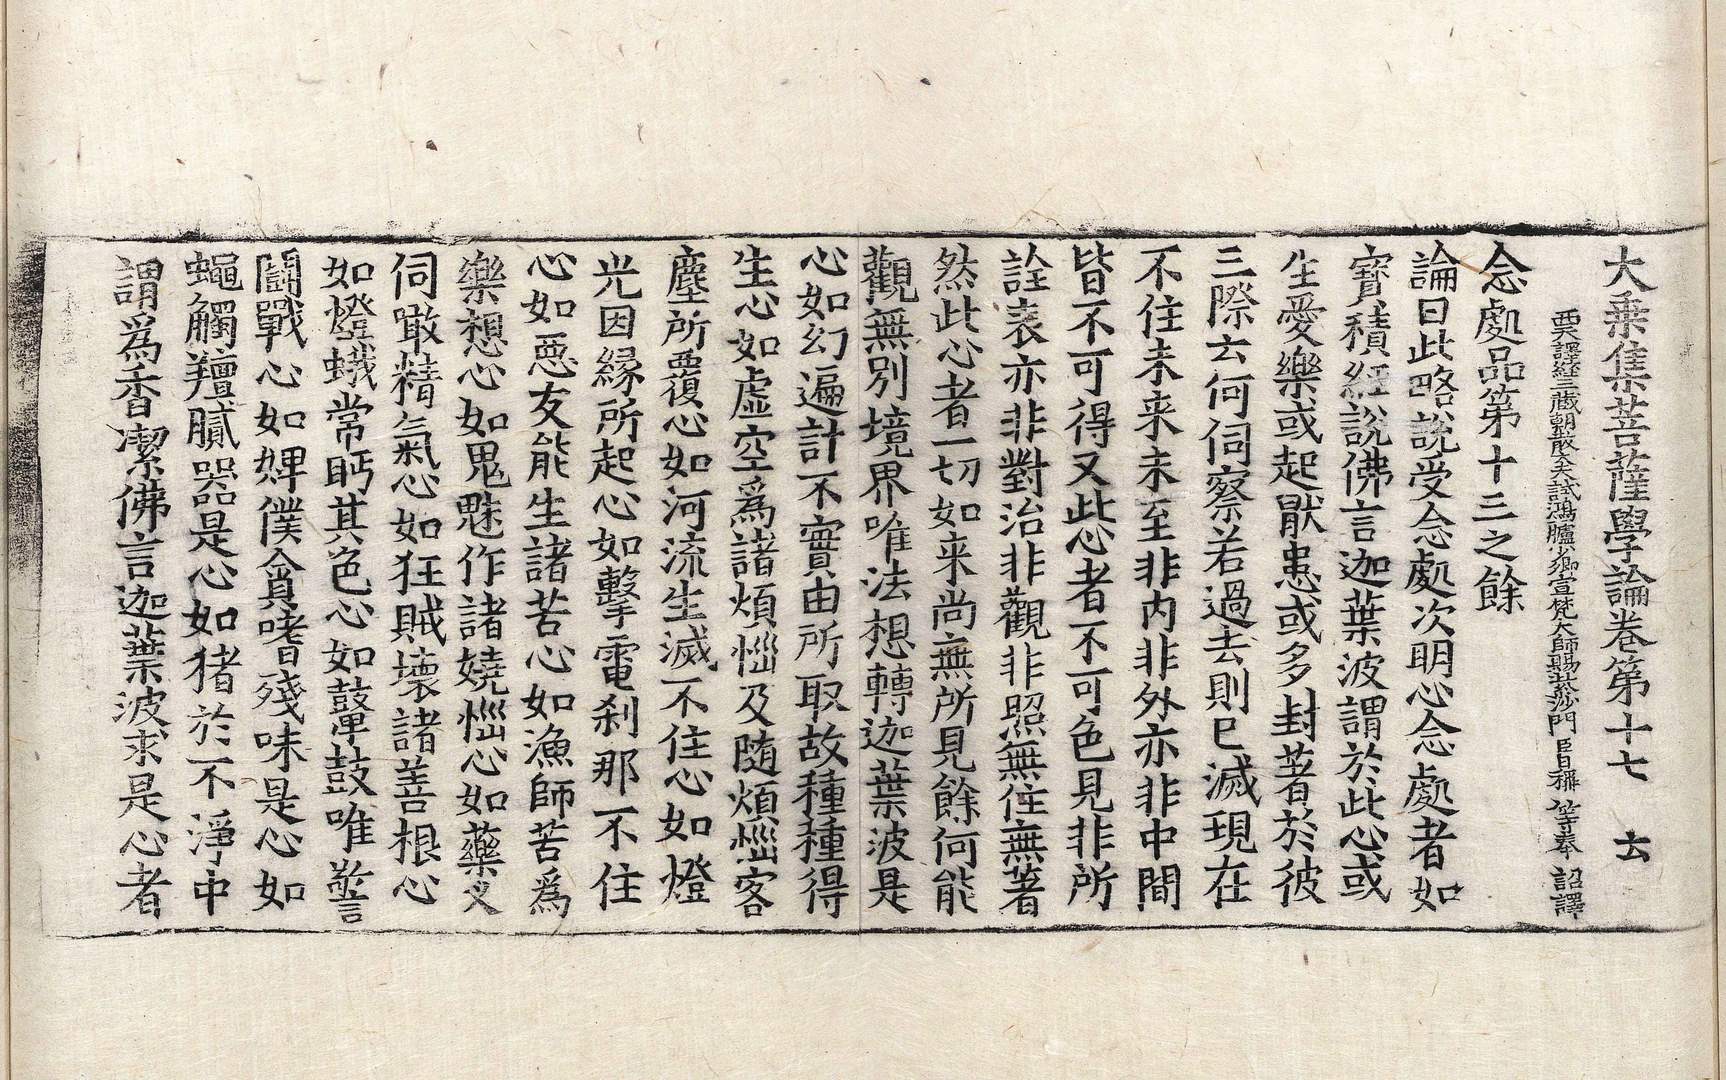 大乗集菩薩學論卷第十七　去
西天譯經三藏朝散大夫試鴻臚少卿宣梵大師賜紫沙門臣日稱等奉　詔譯
念處品第十三之餘
論曰此略說受念處次明心念處者如
寶積經說佛言迦葉波謂於此心或
生愛樂或起猒患或多封著於彼
三際云何伺察若過去則已滅現在
不住未来未至非内非外亦非中間
皆不可得又此心者不可色見非所
詮表亦非對治非觀非照無住無著
然此心者一切如来尚無所見餘何能
觀無别境界唯法想轉迦葉波是
心如幻遍計不實由所取故種種得
生心如虛空爲諸煩惱及随煩惱客
塵所覆心如河流生滅不住心如燈
光因緣所起心如擊電刹那不住
心如惡友能生諸苦心如漁師苦爲
樂想心如鬼魅作諸嬈惱心如藥叉
伺噉精氣心如狂賊壞諸善根心
如燈蛾常眄其色心如鼙鼓唯誓
鬪戰心如婢僕貪嗜殘味是心如
蠅觸羶膩器是心如猪於不淨中
謂爲香潔佛言迦葉波求是心者